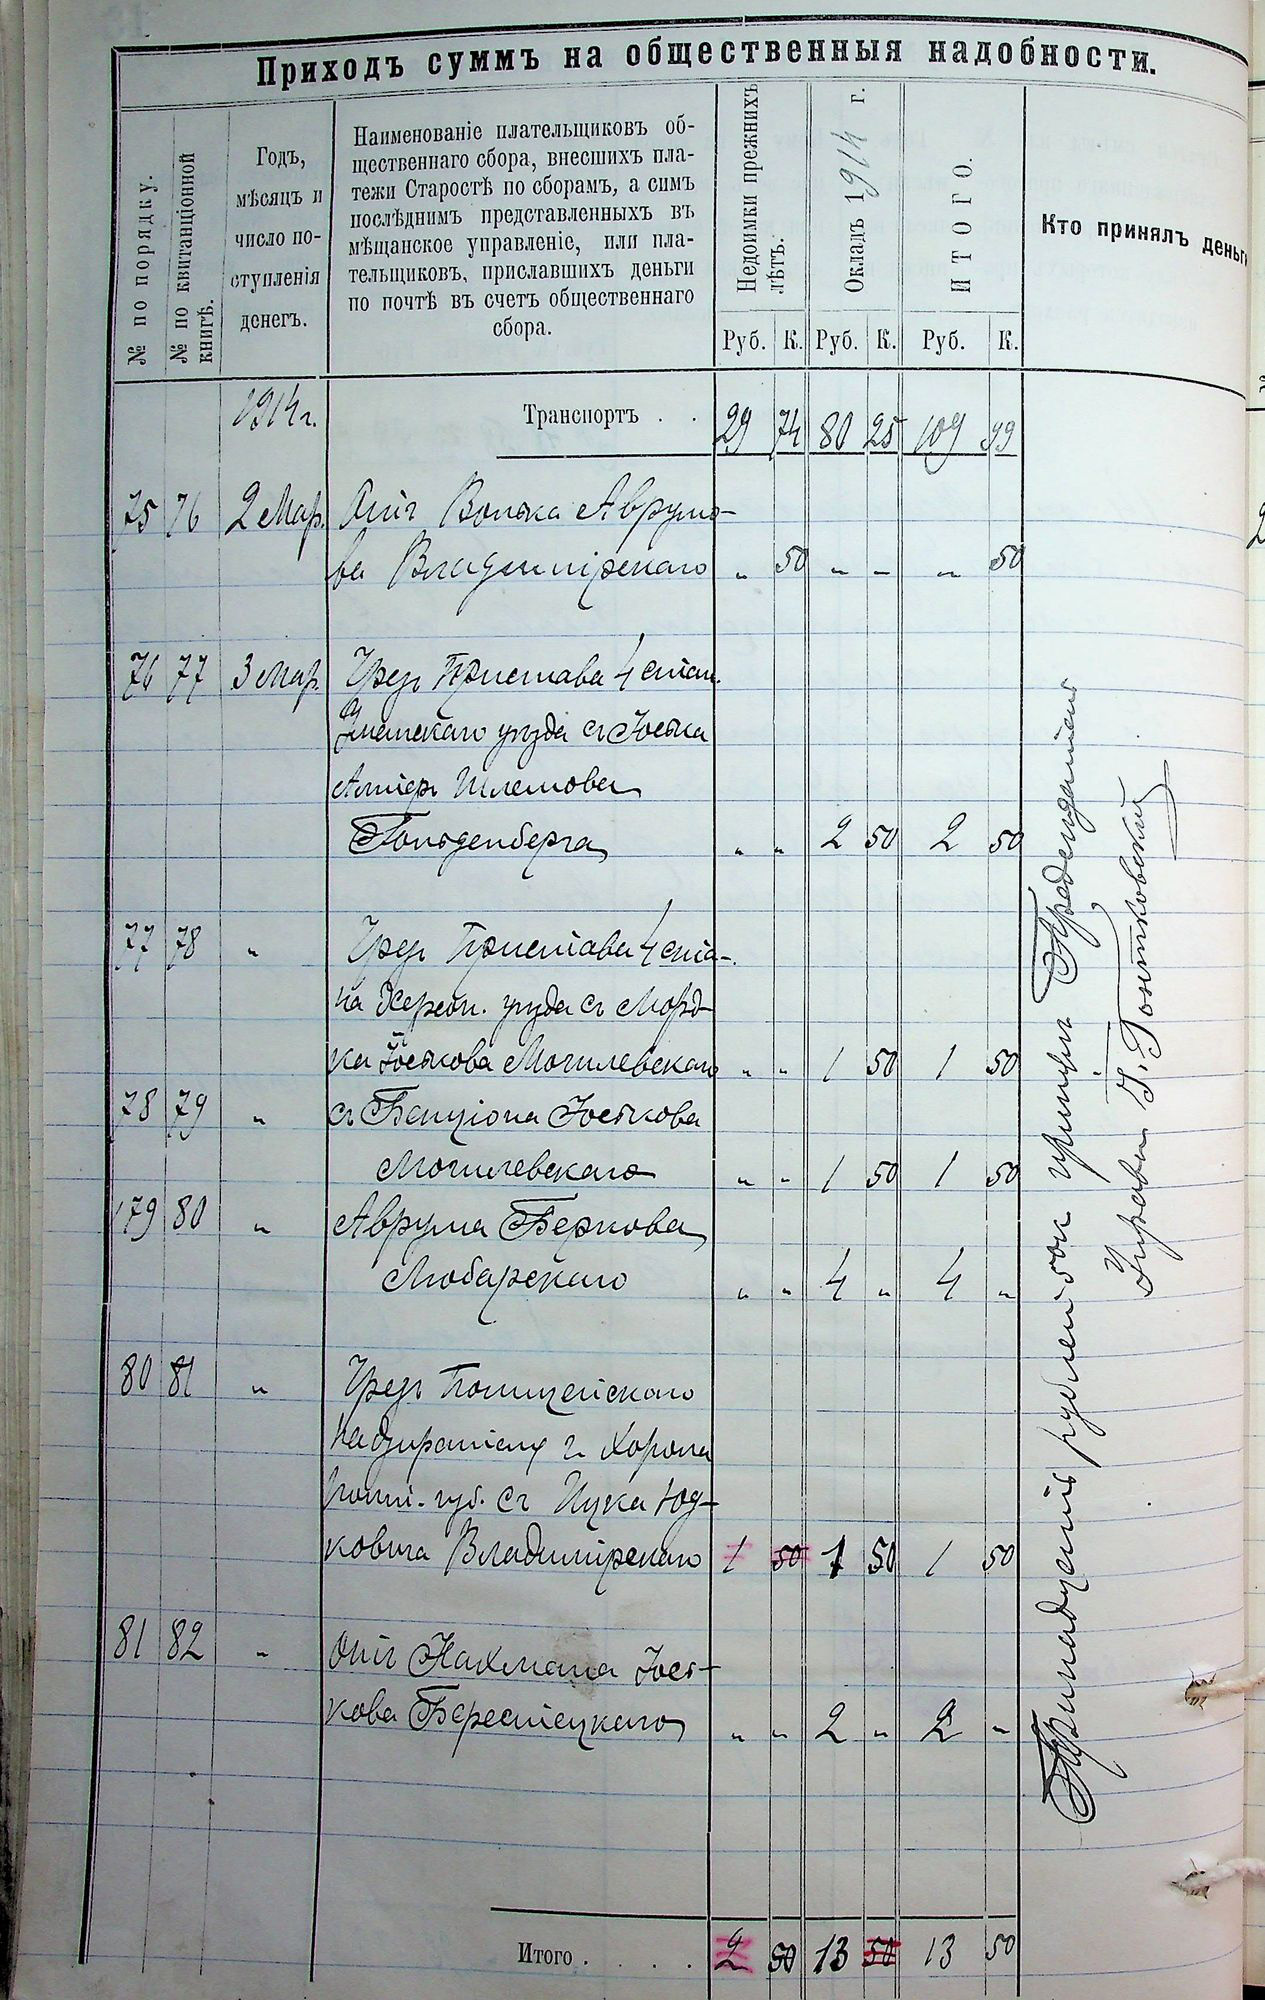 Приходъ суммъ на общественныя надобности.
№ по порядку.
№ по квитанціонной
книгѣ.
Годъ,
мѣсяцъ и
число по-
ступленія
денегъ.
Наименованіе плательщиковъ об-
щественнаго сбора, внесшихъ пла-
тежи Старостѣ по сборамъ, а симъ
послѣднимъ представленныхъ въ
мѣщанское управленіе, или пла-
тельщиковъ, приславшихъ деньги
по почтѣ въ счетъ общественнаго
сбора.
Недоимки прежнихъ
лѣтъ.
Окладъ 1914 г.
ИТОГО.
Кто принялъ деньги
Руб. К. Руб. К. Руб. К.
1914 г. Транспортъ . . 29 74 80 25 109 99
75 76 2 Мар. Отъ Волька Аврумо-
ва Владимірскаго „ 50 „ „ „ 50
76 77 3 Мар. Чрезъ Пристава 4 стан.
уѣзда съ Іоська
Алтеръ Шлемова
Гольденберга „ „ 2 50 2 50
77 78 „ Чрезъ Пристава 4 ста-
на Херсон. уѣзда съ Морд-
ка Іоськова Могилевскаго „ „ 1 50 1 50
78 79 „ съ Бенціона Іоськова
Могилевскаго „ „ 1 50 1 50
79 80 „ Аврума Беркова
Любарскаго „ „ 4 „ 4 „
80 81 „ Чрезъ Полицейскаго
Надзирателя г. Хорола
Полт. губ. съ Ицка Юд-
ковича Владимірскаго 1 50 1 50 1 50
81 82 „ Отъ Нахмана Іось-
кова Берестецкаго „ „ 2 „ 2 „
Итого . . . . 2 50 13 50 13 50
Тринадцать рублей 50 к принялъ Предсѣдатель
Управы Г. Гонтковскій